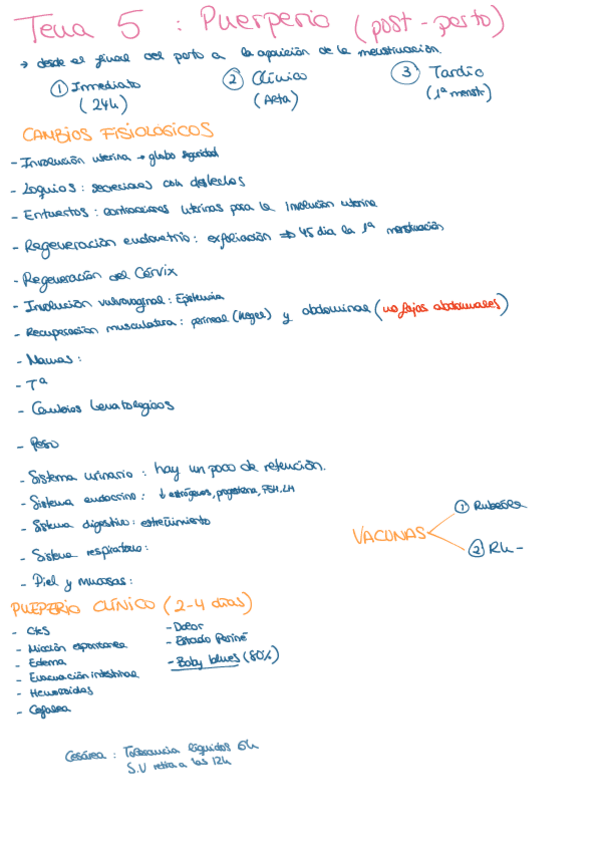 Tema 5 : Puerperio (post-parto)
→ desde el final del parto a la aparición de la menstruación.
① Inmediato ② Clínico ③ Tardío
(24h) (Alta) (1ª menstr)
CAMBIOS FISIOLÓGICOS
- Involución uterina → globo seguridad
- Loquios : secreciones con deshechos
- Entuertos : contracciones uterinas para la involución uterina
- Regeneración endometrio : exfoliación ⇒ 45 dia la 1ª menstruación
- Regeneración del Cérvix
- Involución vulvovaginal :
- Recuperación musculatura : perineal (kegel) y abdominal (no fajas abdominales)
- Mamas :
- Tª
- Cambios hematologicos
- Peso
- Sistema urinario : hay un poco de retención.
- Sistema endocrino : ↓ estrógenos, progesterona, FSH, LH
- Sistema digestivo : estreñimiento
- Sistema respiratorio :
- Piel y mucosas :
VACUNAS
① Rubeola
② Rh -
PUERPERIO CLÍNICO (2-4 días)
- Ctes - Dolor
- Micción espontanea - Estado Periné
- Edema - Baby blues (80%)
- Evacuación intestinal
- Hemorroides
- Cefalea
Cesárea : Tolerancia líquidos 6h
S.V retira a las 12h